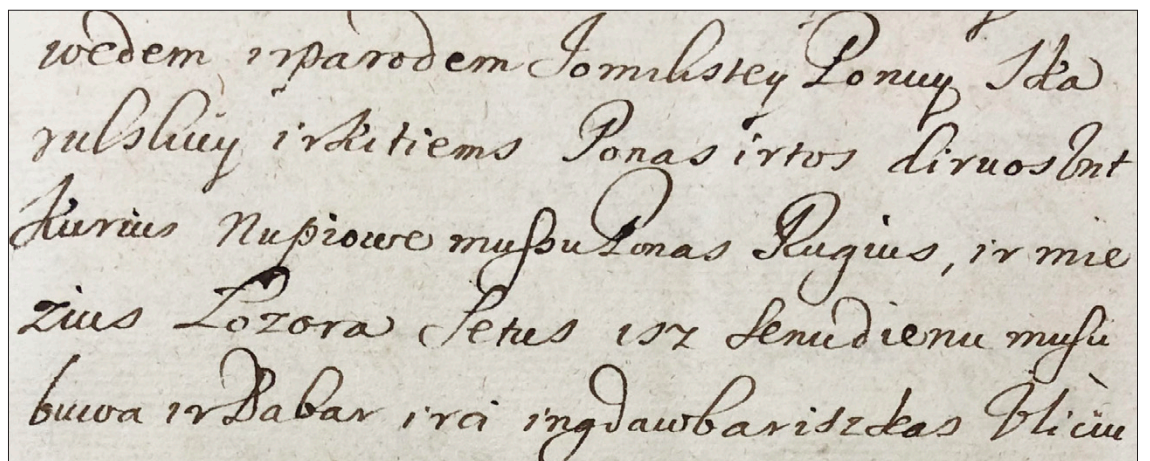 wedem ir parodem Jomilistey Ponuy Ska
rulskiuy ir kitiems Ponas ir tos diruos Unt
kurius Nupiowe mussu Ponas Rugius, ir mie
zius Pozora Setus isz senudienu musu
buwa ir Dabar ira ingdawbariszkas Vliciu